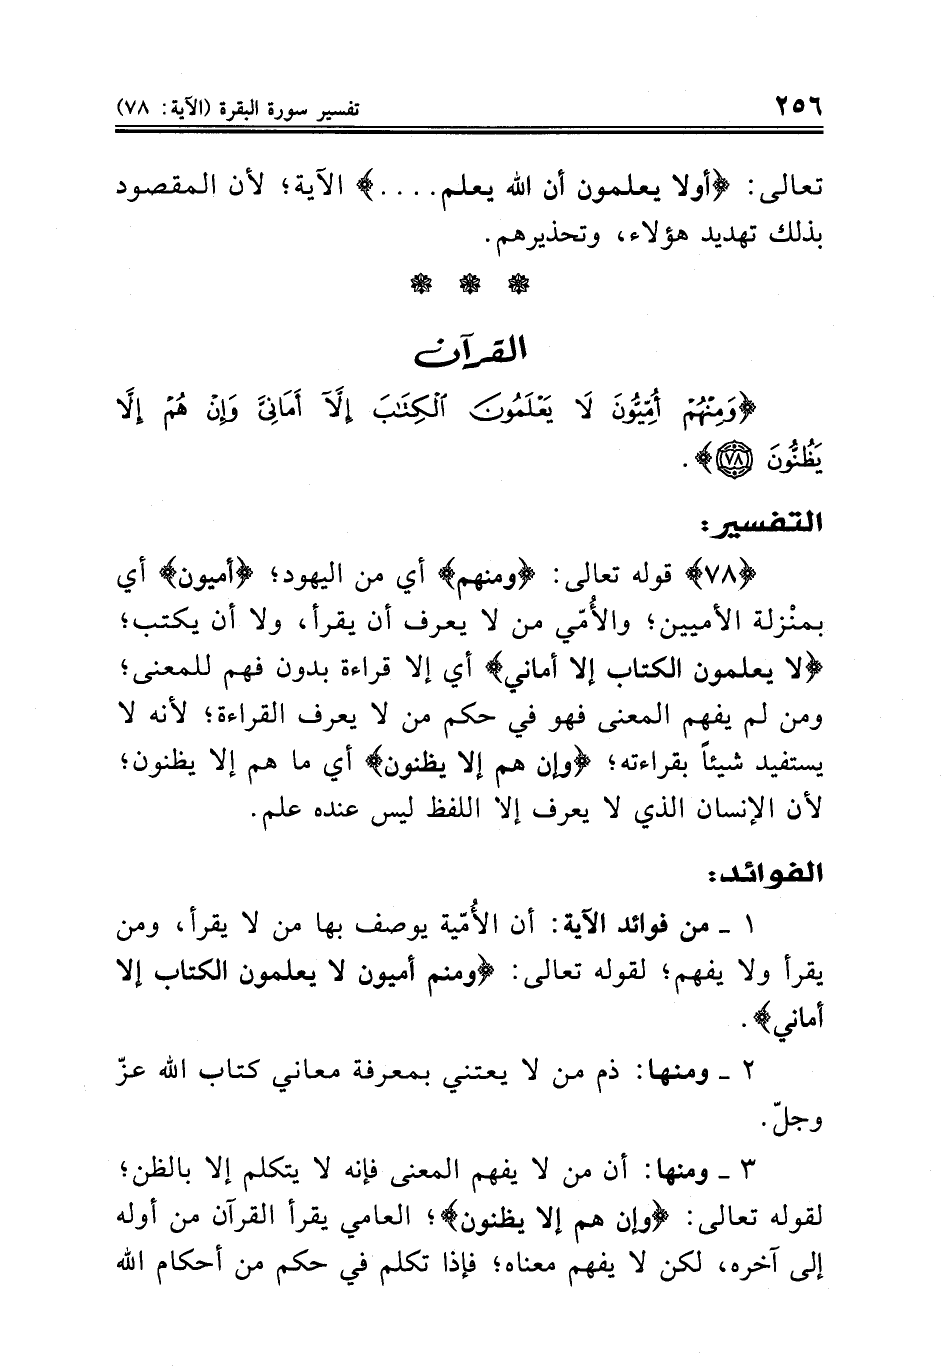 ٢٥٦ تفسير سورة البقرة (الآية: ٧٨)
تعالى: ﴿أولا يعلمون أن الله يعلم....﴾ الآية؛ لأن المقصود
بذلك تهديد هؤلاء، وتحذيرهم.
القرآن
﴿وَمِنْهُمْ أُمِّيُّونَ لَا يَعْلَمُونَ ٱلْكِتَٰبَ إِلَّآ أَمَانِىَّ وَإِنْ هُمْ إِلَّا
يَظُنُّونَ ٧٨﴾.
التفسير:
﴿٧٨﴾ قوله تعالى: ﴿ومنهم﴾ أي من اليهود؛ ﴿أميون﴾ أي
بمنْزلة الأميين؛ والأُمّي من لا يعرف أن يقرأ، ولا أن يكتب؛
﴿لا يعلمون الكتاب إلا أماني﴾ أي إلا قراءة بدون فهم للمعنى؛
ومن لم يفهم المعنى فهو في حكم من لا يعرف القراءة؛ لأنه لا
يستفيد شيئاً بقراءته؛ ﴿وإن هم إلا يظنون﴾ أي ما هم إلا يظنون؛
لأن الإنسان الذي لا يعرف إلا اللفظ ليس عنده علم.
الفوائد:
١ ـ من فوائد الآية: أن الأُمّية يوصف بها من لا يقرأ، ومن
يقرأ ولا يفهم؛ لقوله تعالى: ﴿ومنم أميون لا يعلمون الكتاب إلا
أماني﴾.
٢ ـ ومنها: ذم من لا يعتني بمعرفة معاني كتاب الله عزّ
وجلّ.
٣ ـ ومنها: أن من لا يفهم المعنى فإنه لا يتكلم إلا بالظن؛
لقوله تعالى: ﴿وإن هم إلا يظنون﴾؛ العامي يقرأ القرآن من أوله
إلى آخره، لكن لا يفهم معناه؛ فإذا تكلم في حكم من أحكام الله